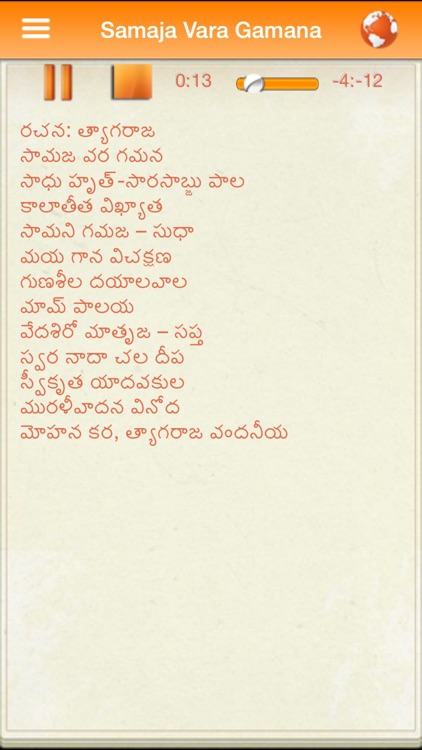 Samaja Vara Gamana
0:13 -4:-12
రచన: త్యాగరాజ
సామజ వర గమన
సాధు హృత్-సారసాబ్జు పాల
కాలాతీత విఖ్యాత
సామని గమజ – సుధా
మయ గాన విచక్షణ
గుణశీల దయాలవాల
మామ్ పాలయ
వేదశిరో మాతృజ – సప్త
స్వర నాదా చల దీప
స్వీకృత యాదవకుల
మురళీవాదన వినోద
మోహన కర, త్యాగరాజ వందనీయ